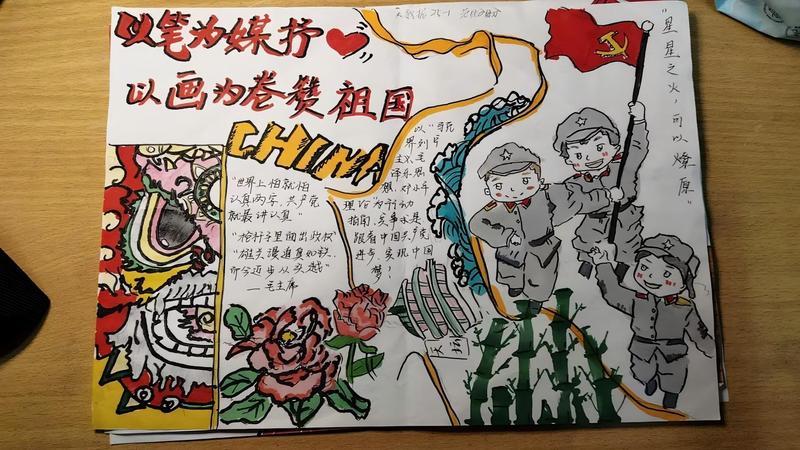 以笔为媒抒
以画为卷赞祖国
CHINA
"世界上怕就怕
认真两字，共产党
就最讲认真"
"枪杆子里面出政权"
"雄关漫道真如铁，
而今迈步从头越"
——毛主席
以"马克
思列宁
主义、毛
泽东思
想、邓小平
理论"为行动
指南，
跟着中国共产党
进步，实现中国
梦！
天坛
"星星之火，可以燎原"